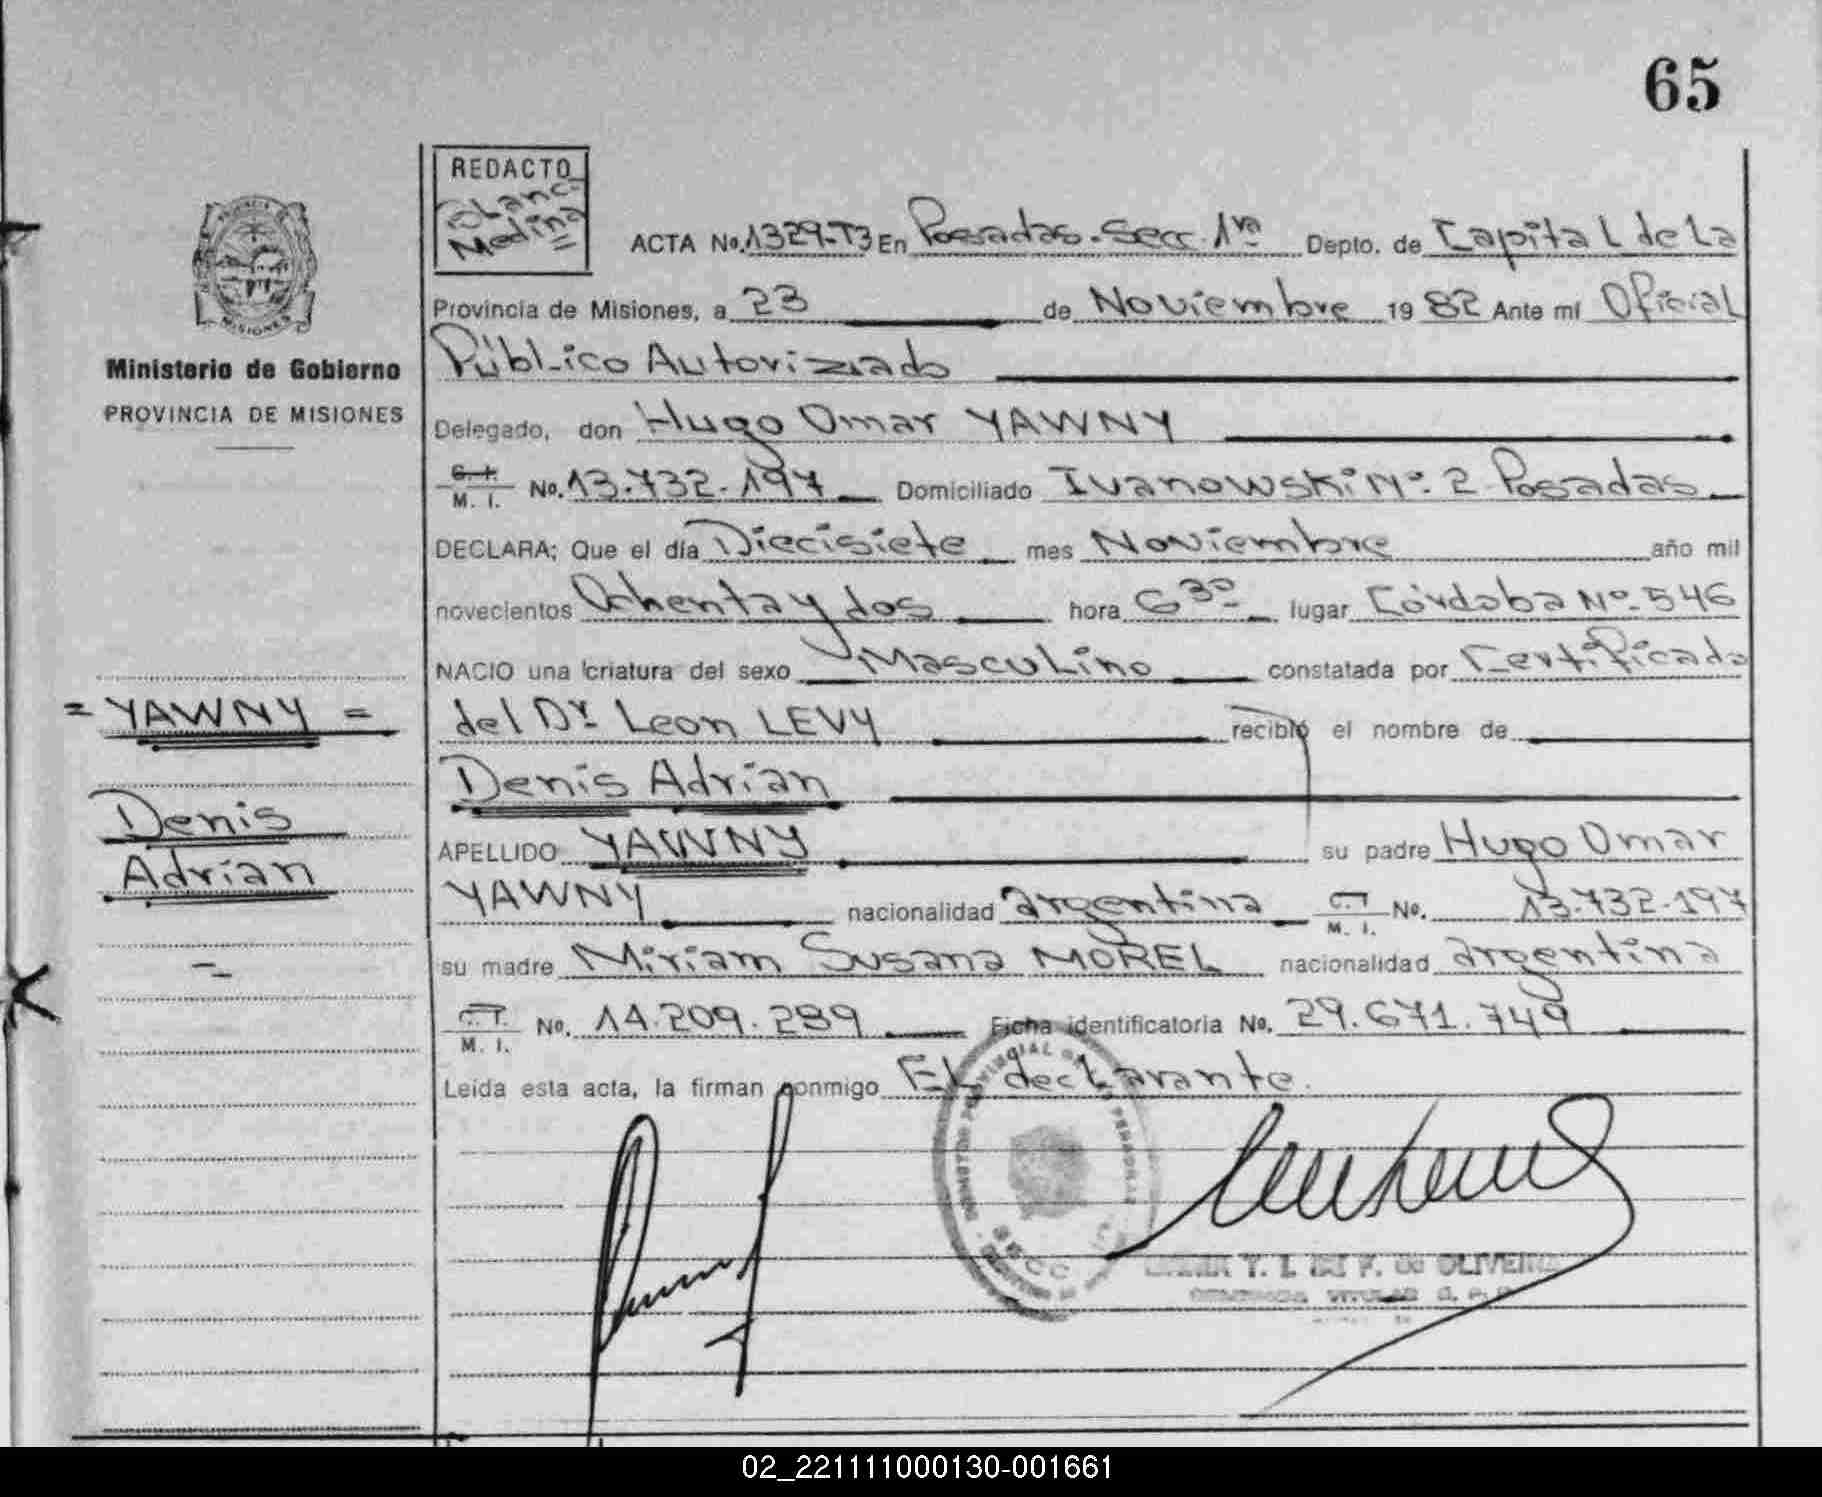 65
REDACTO
Blanc
Medina
ACTA No. 1329-T3 En Posadas. Secc. 1ra Depto. de Capital de La
Provincia de Misiones, a 23 de Noviembre 1982 Ante mí Oficial
Público Autorizado
Delegado, don Hugo Omar YAWNY
C. I. M. I. No. 13.732.197 Domiciliado Ivanowski Nº 2 Posadas
DECLARA; Que el día Diecisiete mes Noviembre año mil
novecientos Ochenta y dos hora 6 30 lugar Córdoba Nº 546
NACIO una criatura del sexo Masculino constatada por Certificado
del Dr Leon LEVY recibió el nombre de
Denis Adrian
APELLIDO YAWNY su padre Hugo Omar
YAWNY nacionalidad argentina C.I. M. I. No. 13.732.197
su madre Miriam Susana MOREL nacionalidad argentina
C.I. M. I. No. 14.209.289 Ficha identificatoria No. 29.671.749
Leída esta acta, la firman conmigo EL declarante.
Ministerio de Gobierno
PROVINCIA DE MISIONES
= YAWNY =
Denis
Adrian
Y. I. F. de OLIVEIRA
02_221111000130-001661